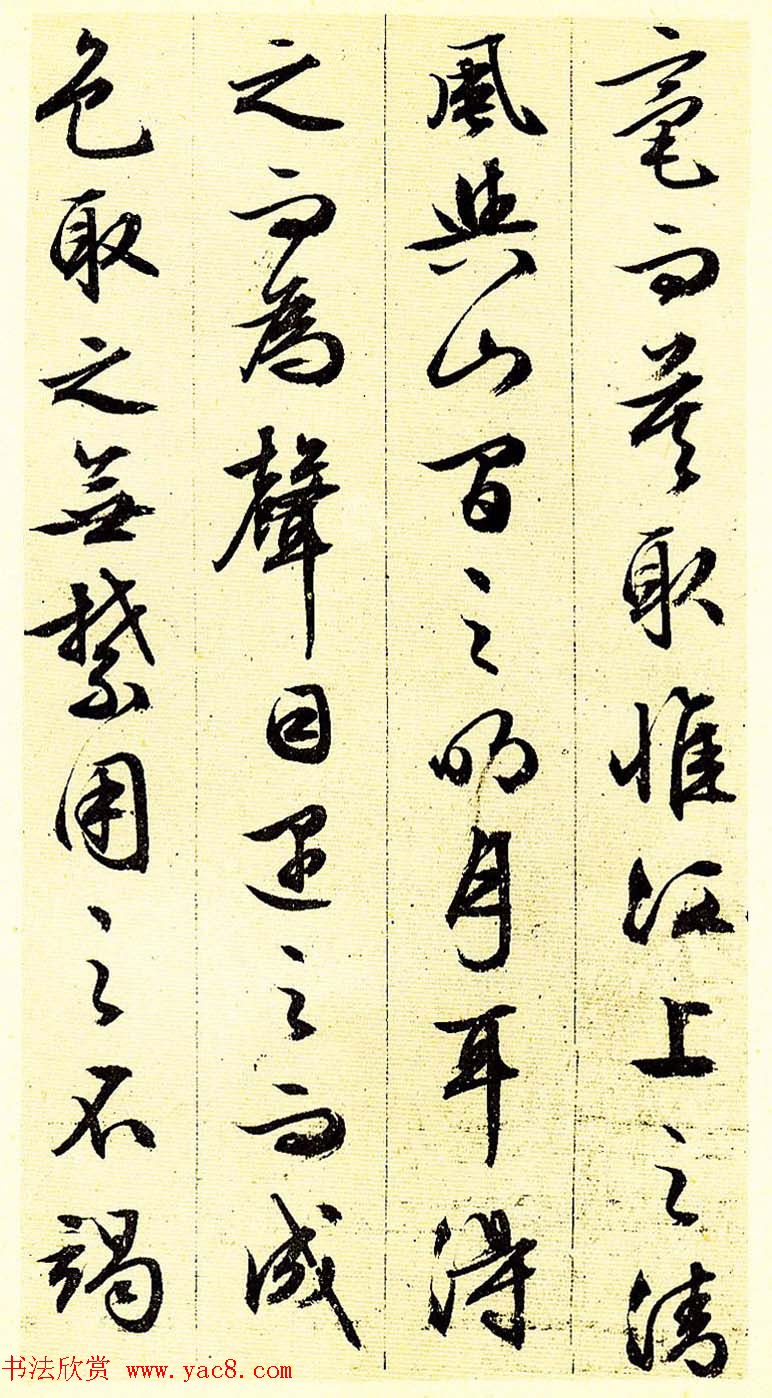 毫而莫取惟江上之清
風與山間之明月耳得
之而為聲目遇之而成
色取之無禁用之不竭
书法欣赏 www.yac8.com